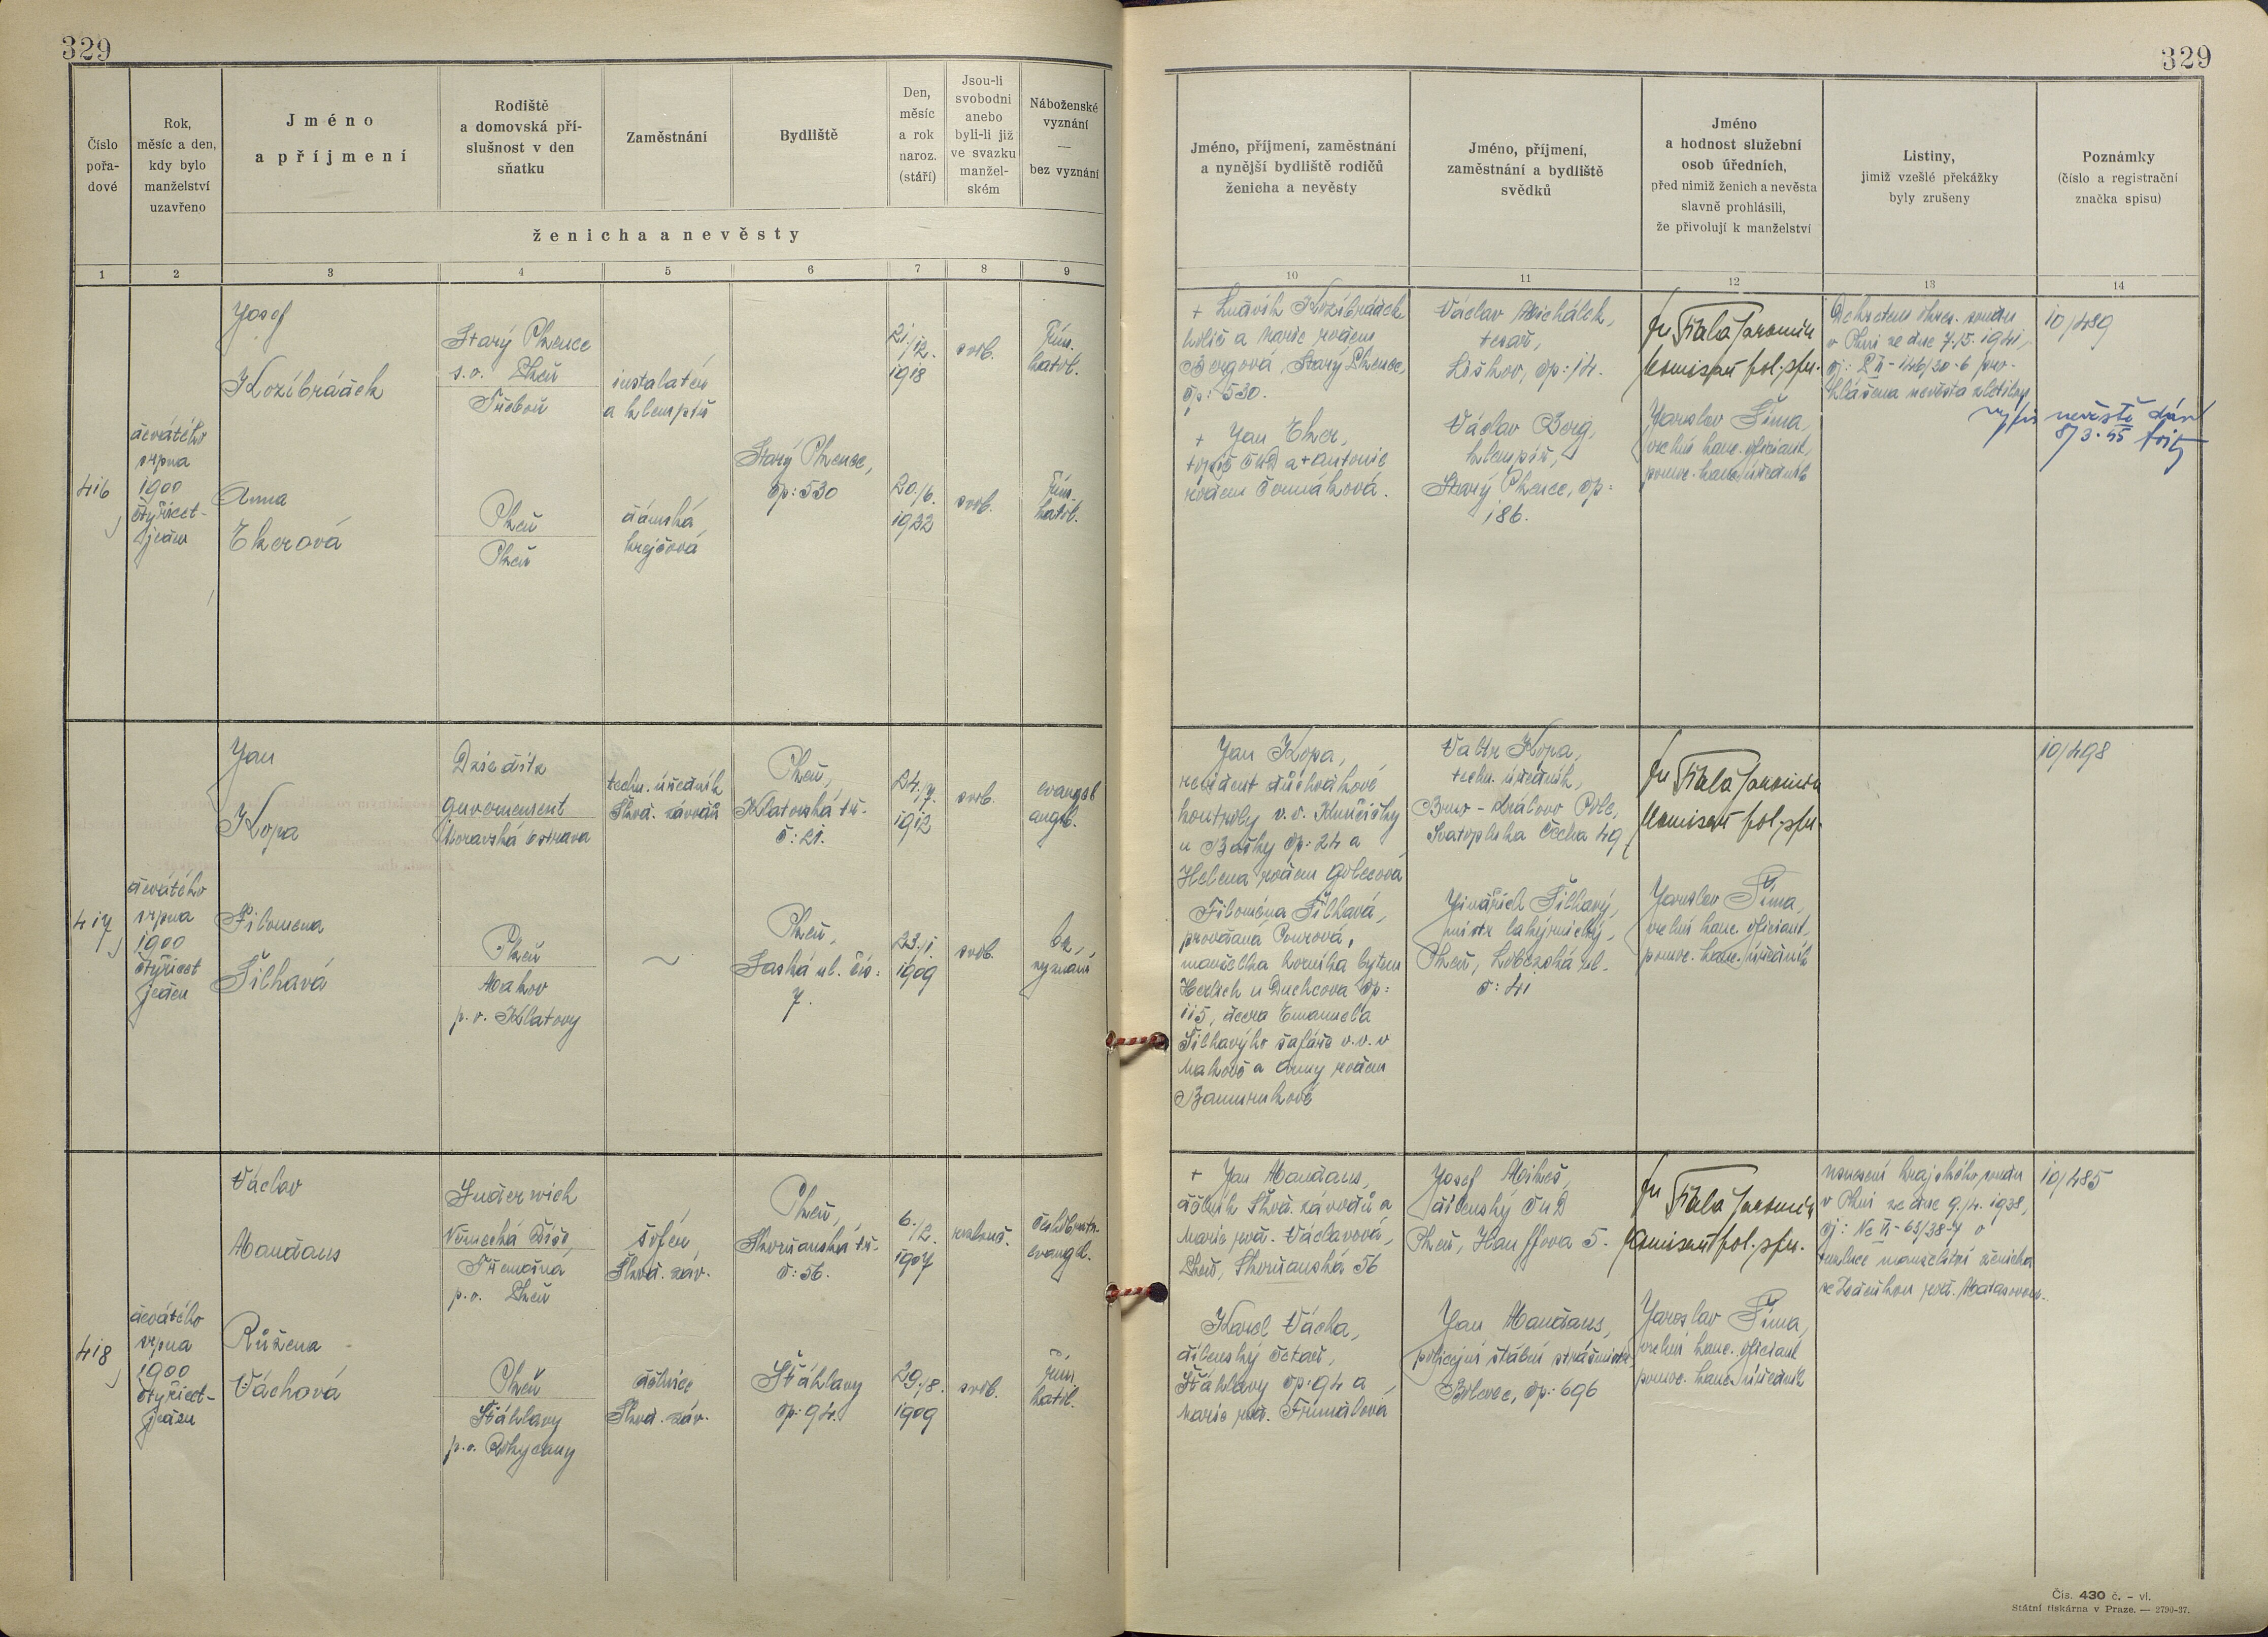 329
329
Číslo
pořa-
dové
Rok,
měsíc a den,
kdy bylo
manželství
uzavřeno
Jméno
a příjmení
Rodiště
a domovská pří-
slušnost v den
sňatku
Zaměstnání
Bydliště
Den,
měsíc
a rok
naroz.
(stáří)
Jsou-li
svobodni
anebo
byli-li již
ve svazku
manžel-
ském
Náboženské
vyznání
—
bez vyznání
ženicha a nevěsty
1 2 3 4 5 6 7 8 9
Jméno, příjmení, zaměstnání
a nynější bydliště rodičů
ženicha a nevěsty
Jméno, příjmení,
zaměstnání a bydliště
svědků
Jméno
a hodnost služební
osob úředních,
před nimiž ženich a nevěsta
slavně prohlásili,
že přivolují k manželství
Listiny,
jimiž vzešlé překážky
byly zrušeny
Poznámky
(číslo a registrační
značka spisu)
10 11 12 13 14
416
devátého
srpna
1900
čtyřicet-
jeden
Josef
Kozibrádek
Starý Plzenec
s.o. Plzeň
Třeboň
instalatér
a klempíř
21./12.
1918
svob.
řím.
katol.
Starý Plzenec,
čp: 530
Anna
Ekerová
Plzeň
Plzeň
dámská
krejčová
20./6.
1922
svob.
řím.
katol.
+ Ludvík Kozibrádek
holič a Marie rozená
Bergová, Starý Plzenec,
čp: 530.
+ Jan Eker,
topič ČMD a + Antonie
rozená Čermáková.
Václav Michálek,
tesař,
čp: 14.
Václav Berg,
klempíř,
Starý Plzenec, čp:
186.
Fiala Jaromír
komisař pol. spr.
Jaroslav Šíma,
vrchní kanc. oficiant,
pomoc. kanc. úředník
Dekretem okres. soudu
v Plzni ze dne 7./5. 1941,
čj: P II-146/20-6 pro-
hlášena nevěsta zletilou
10/489
výpis nevěstě dán
8/3.45
417
devátého
srpna
1900
čtyřicet
jeden
Jan
Kopa
guvernement
Moravská Ostrava
techn. úředník
Škod. závodů
Plzeň,
Klatovská tř.
č: 21.
24./7.
1912
svob.
evangel
augsb.
Filomena
Šilhavá
Plzeň
Makov
p.o. Klatovy
~
Plzeň,
Saská ul. čís:
7.
23./1.
1909
svob.
bez
vyznání
Jan Kopa,
revident důchodkové
kontroly v.v. Kunčičky
u Bašky čp: 24 a
Helena rozená Golecová
Filoména Šilhavá,
provdaná Pourová,
manželka horníka bytem
u Duchcova čp:
115, dcera Emanuela
Šilhavýho šafáře v.v. v
Makově a Anny rozené
Valtr Kopa,
techn. úředník,
Brno - Královo Pole,
Svatopluka Čecha 49
Jindřich Šilhavý,
mistr lakýrnický,
Plzeň, Lobezská ul.
č: 41
Fiala Jaromír
komisař pol. spr.
Jaroslav Šíma,
vrchní kanc. oficiant,
pomoc. kanc. úředník
10/498
418
devátého
srpna
1900
čtyřicet-
jeden
Václav
Mandaus
Německá Říše,
Třemošná
p.o. Plzeň
šofér
Škod. záv.
Plzeň,
Skvrňanská tř.
č: 56.
6./2.
1907
rozlouč.
českobratr.
evangel.
Růžena
Váchová
Plzeň
Šťáhlavy
p.o. Rokycany
dělnice
Škod. záv.
Šťáhlavy
čp: 94.
29./8.
1909
svob.
řím.
katol.
+ Jan Mandaus,
dělník Škod. závodů a
Marie roz. Václavová,
Plzeň, Skvrňanská 56
Karel Vácha,
dílenský četař,
Šťáhlavy čp: 94 a
Marie roz. Frümalová
Josef Mikeš,
dílenský ČMD
Plzeň, Hauffova 5.
Jan Mandaus,
policejní štábní strážmistr
Bolevec, čp: 696
Fiala Jaromír
komisař pol. spr.
Jaroslav Šíma,
vrchní kanc. oficiant
pomoc. kanc. úředník
usnesení krajského soudu
v Plzni ze dne 9./4. 1938,
čj: Nc II-63/38-7 o
rozluce manželství ženicha
se Zdeňkou roz. Matasovou.
10/485
Čís. 430 č. - vl.
Státní tiskárna v Praze. — 2790-37.